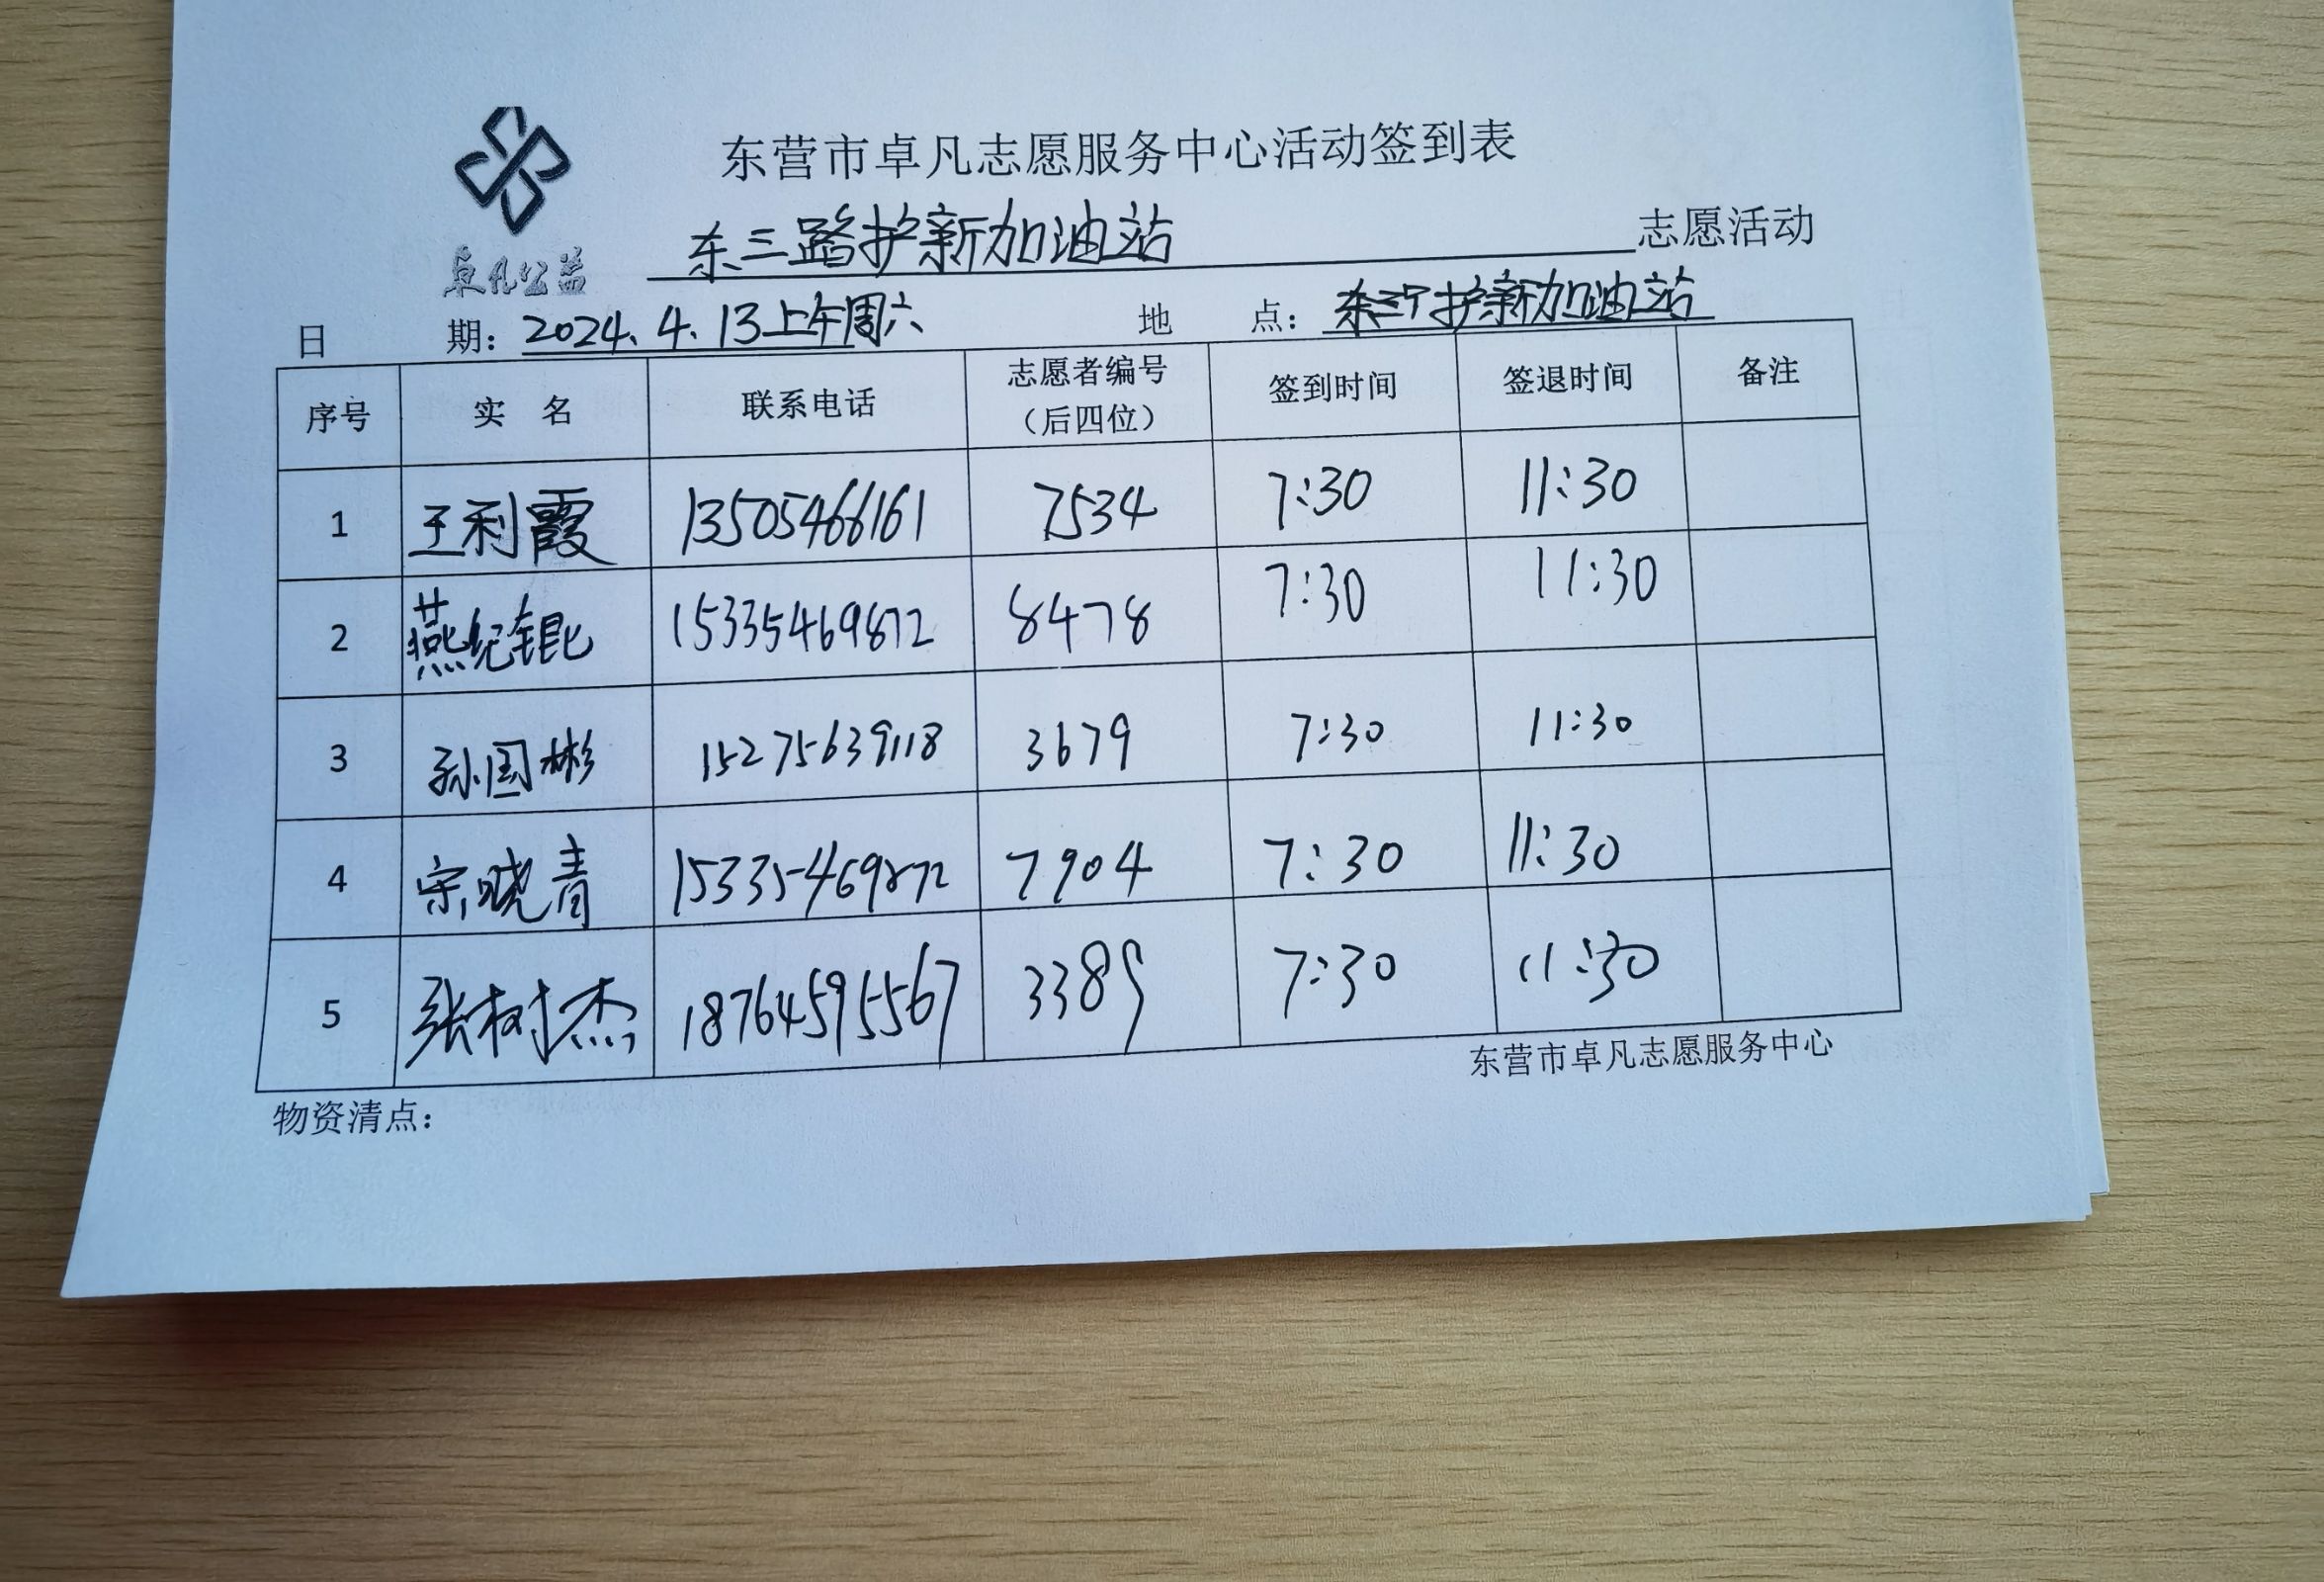 东营市卓凡志愿服务中心活动签到表
卓凡公益
东三路护新加油站 志愿活动
日 期：2024.4.13上午周六 地 点：东三路护新加油站
序号 实 名 联系电话 志愿者编号（后四位） 签到时间 签退时间 备注
1 王利霞 13505466161 7534 7:30 11:30
2 燕纪锟 15335469872 8478 7:30 11:30
3 孙国彬 15275639118 3679 7:30 11:30
4 宋晓青 15335469872 7904 7:30 11:30
5 张树杰 18764595567 3389 7:30 11:30
东营市卓凡志愿服务中心
物资清点：